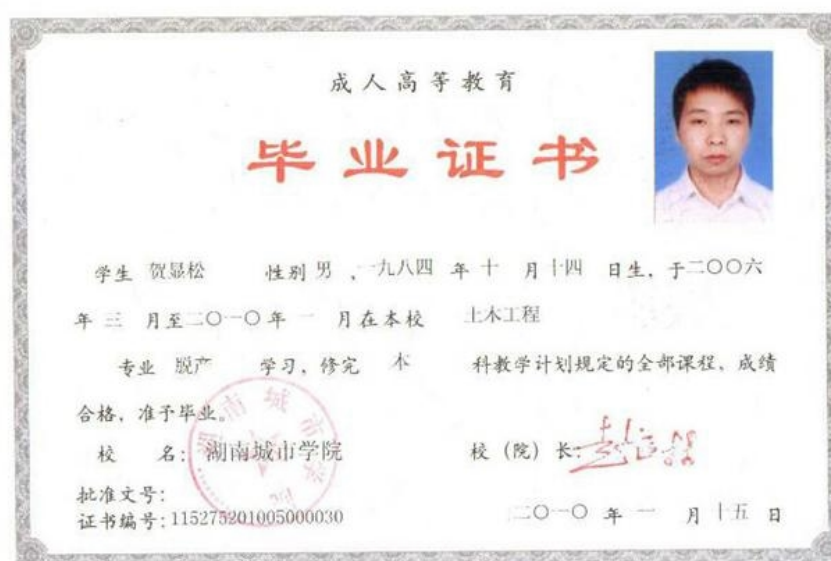 成人高等教育
毕业证书
学生 贺显松 性别 男 ，一九八四 年 十 月 十四 日生，于二〇〇六
年 三 月至二〇一〇年 一 月在本校 土木工程
专业 脱产 学习，修完 本 科教学计划规定的全部课程，成绩
合格，准予毕业。
校 名：湖南城市学院 校（院）长：
批准文号：
证书编号：115275201005000030 二〇一〇 年 一 月 十五 日
湖南城市学院